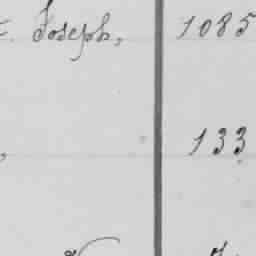 Joseph, 1085
, 133